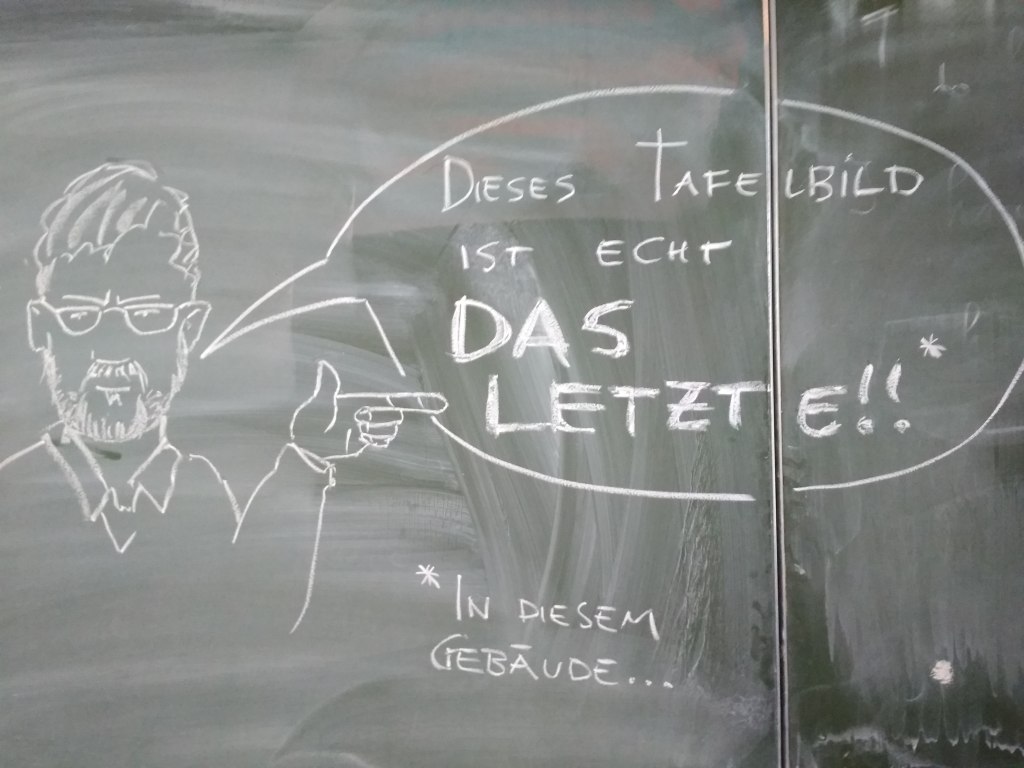 DIESES TAFELBILD
IST ECHT
DAS
LETZTE!!*
*IN DIESEM
GEBÄUDE...